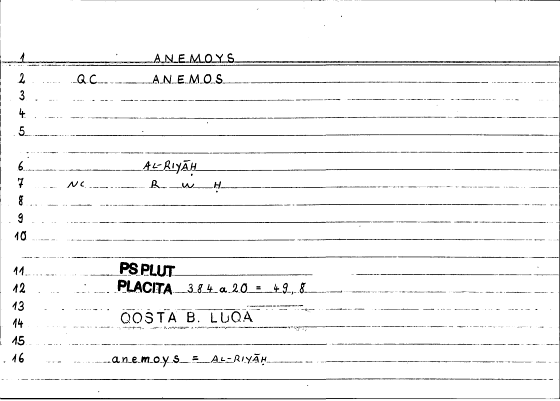 1 ANEMOYS
2 QC ANEMOS
3
4
5
6 AL-RIYĀḤ
7 NC R W Ḥ
8
9
10
11 PS PLUT
12 PLACITA 384 a 20 = 49, 8
13
14 QOSTA B. LUQA
15
16 anemoys = AL-RIYĀḤ